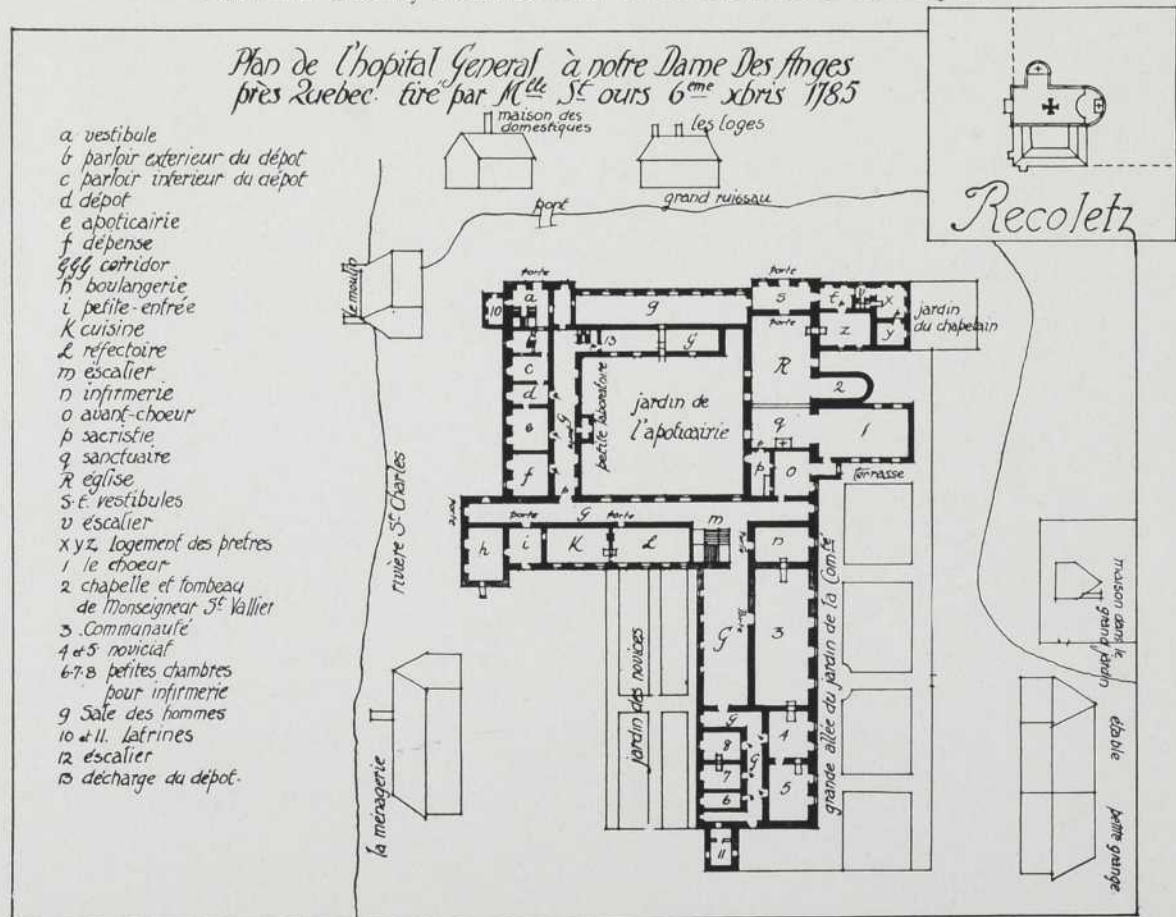 Plan de l'hopital General à notre Dame Des Anges
près Quebec. tiré par Mlle St ours 6eme xbris 1785
a vestibule
b parloir exterieur du dépot
c parloir interieur du dépot
d dépot
e apoticairie
f dépense
GGG corridor
h boulangerie
i petite-entrée
K cuisine
L réfectoire
m éscalier
n infirmerie
o avant-choeur
p sacristie
q sanctuaire
R église
S.t. vestibules
v éscalier
x y z logement des pretres
1 le choeur
2 chapelle et tombeau
de Monseigneur St Vallier
3 .Communauté
4 et 5 noviciat
6-7-8 petites chambres
pour infirmerie
9 Sale des hommes
10 et 11. Latrines
12 éscalier
13 décharge du dépot.
maison des
domestiques
les loges
grand ruissau
pont
Recoletz
le moulin
rivière St Charles
la ménagerie
porte
porte
10
a
9
s
t
v
x
y
z
jardin
du chapelain
porte
13
G
R
c
d
e
f
G
petite laboratoire
jardin de
l'apoticairie
2
q
1
p
o
terrasse
porte
G
porte
m
h
i
K
L
n
G
3
jardin des novices
grande allée du jardin de la Comté
g
4
8
G
7
5
6
11
maison dans le
grand jardin
étable
petite grange